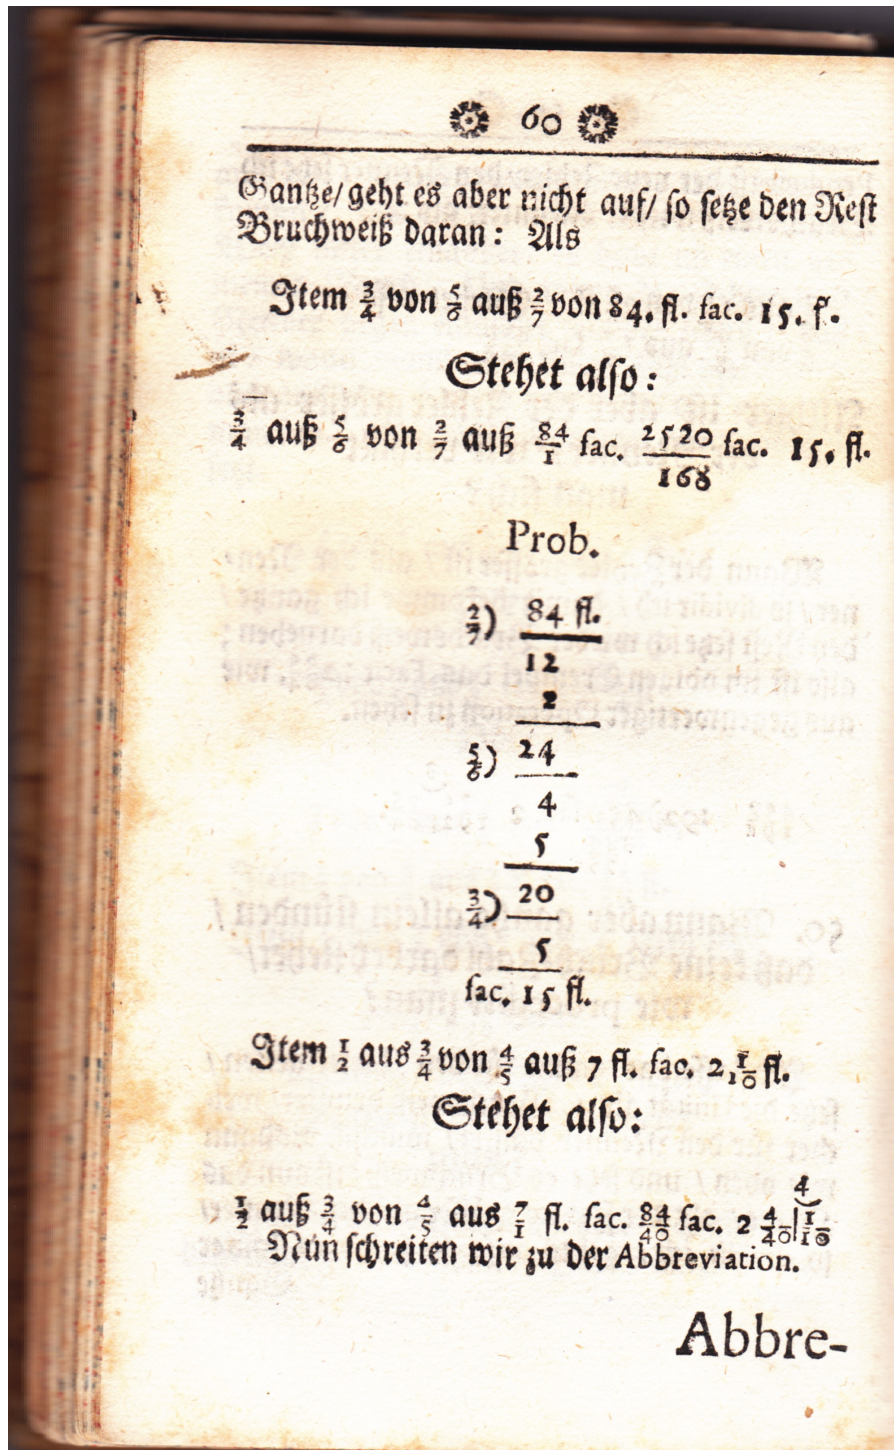 60
Gantze/ geht es aber nicht auf/ so setze den Rest
Bruchweiß daran: Als
Item 3/4 von 5/6 auß 2/7 von 84. fl. fac. 15. f.
Stehet also:
3/4 auß 5/6 von 2/7 auß 84/1 fac. 2520/168 fac. 15. fl.
Prob.
2/7) 84 fl.
12
2
5/6) 24
4
5
3/4) 20
5
fac. 15 fl.
Item 1/2 aus 3/4 von 4/5 auß 7 fl. fac. 2 1/10 fl.
Stehet also:
4
1/2 auß 3/4 von 4/5 aus 7/1 fl. fac. 84/40 fac. 2 4/40 | 1/10
Nun schreiten wir zu der Abbreviation.
Abbre-